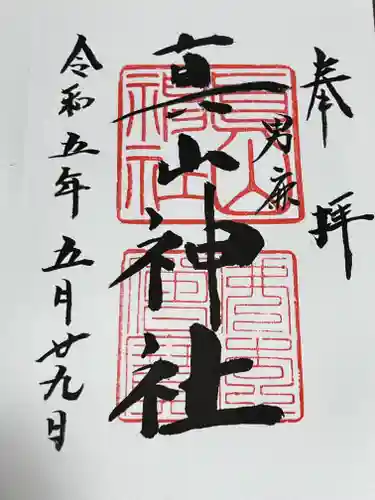 奉拝
男鹿
真山神社
令和五年五月廿九日